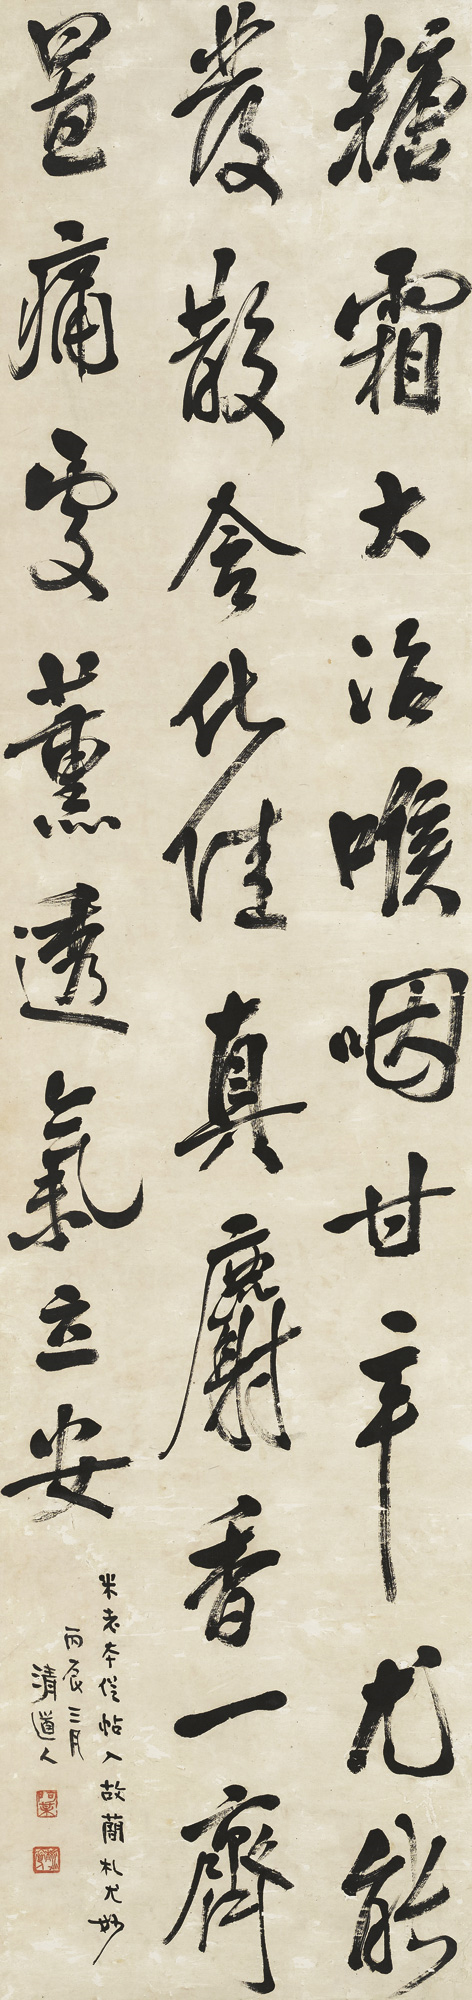 糖霜大治喉咽甘辛尤能
發散含化佳真麝香一齊
置痛處薰透氣立安
米老本從帖入故簡札尤妙
丙辰三月
清道人